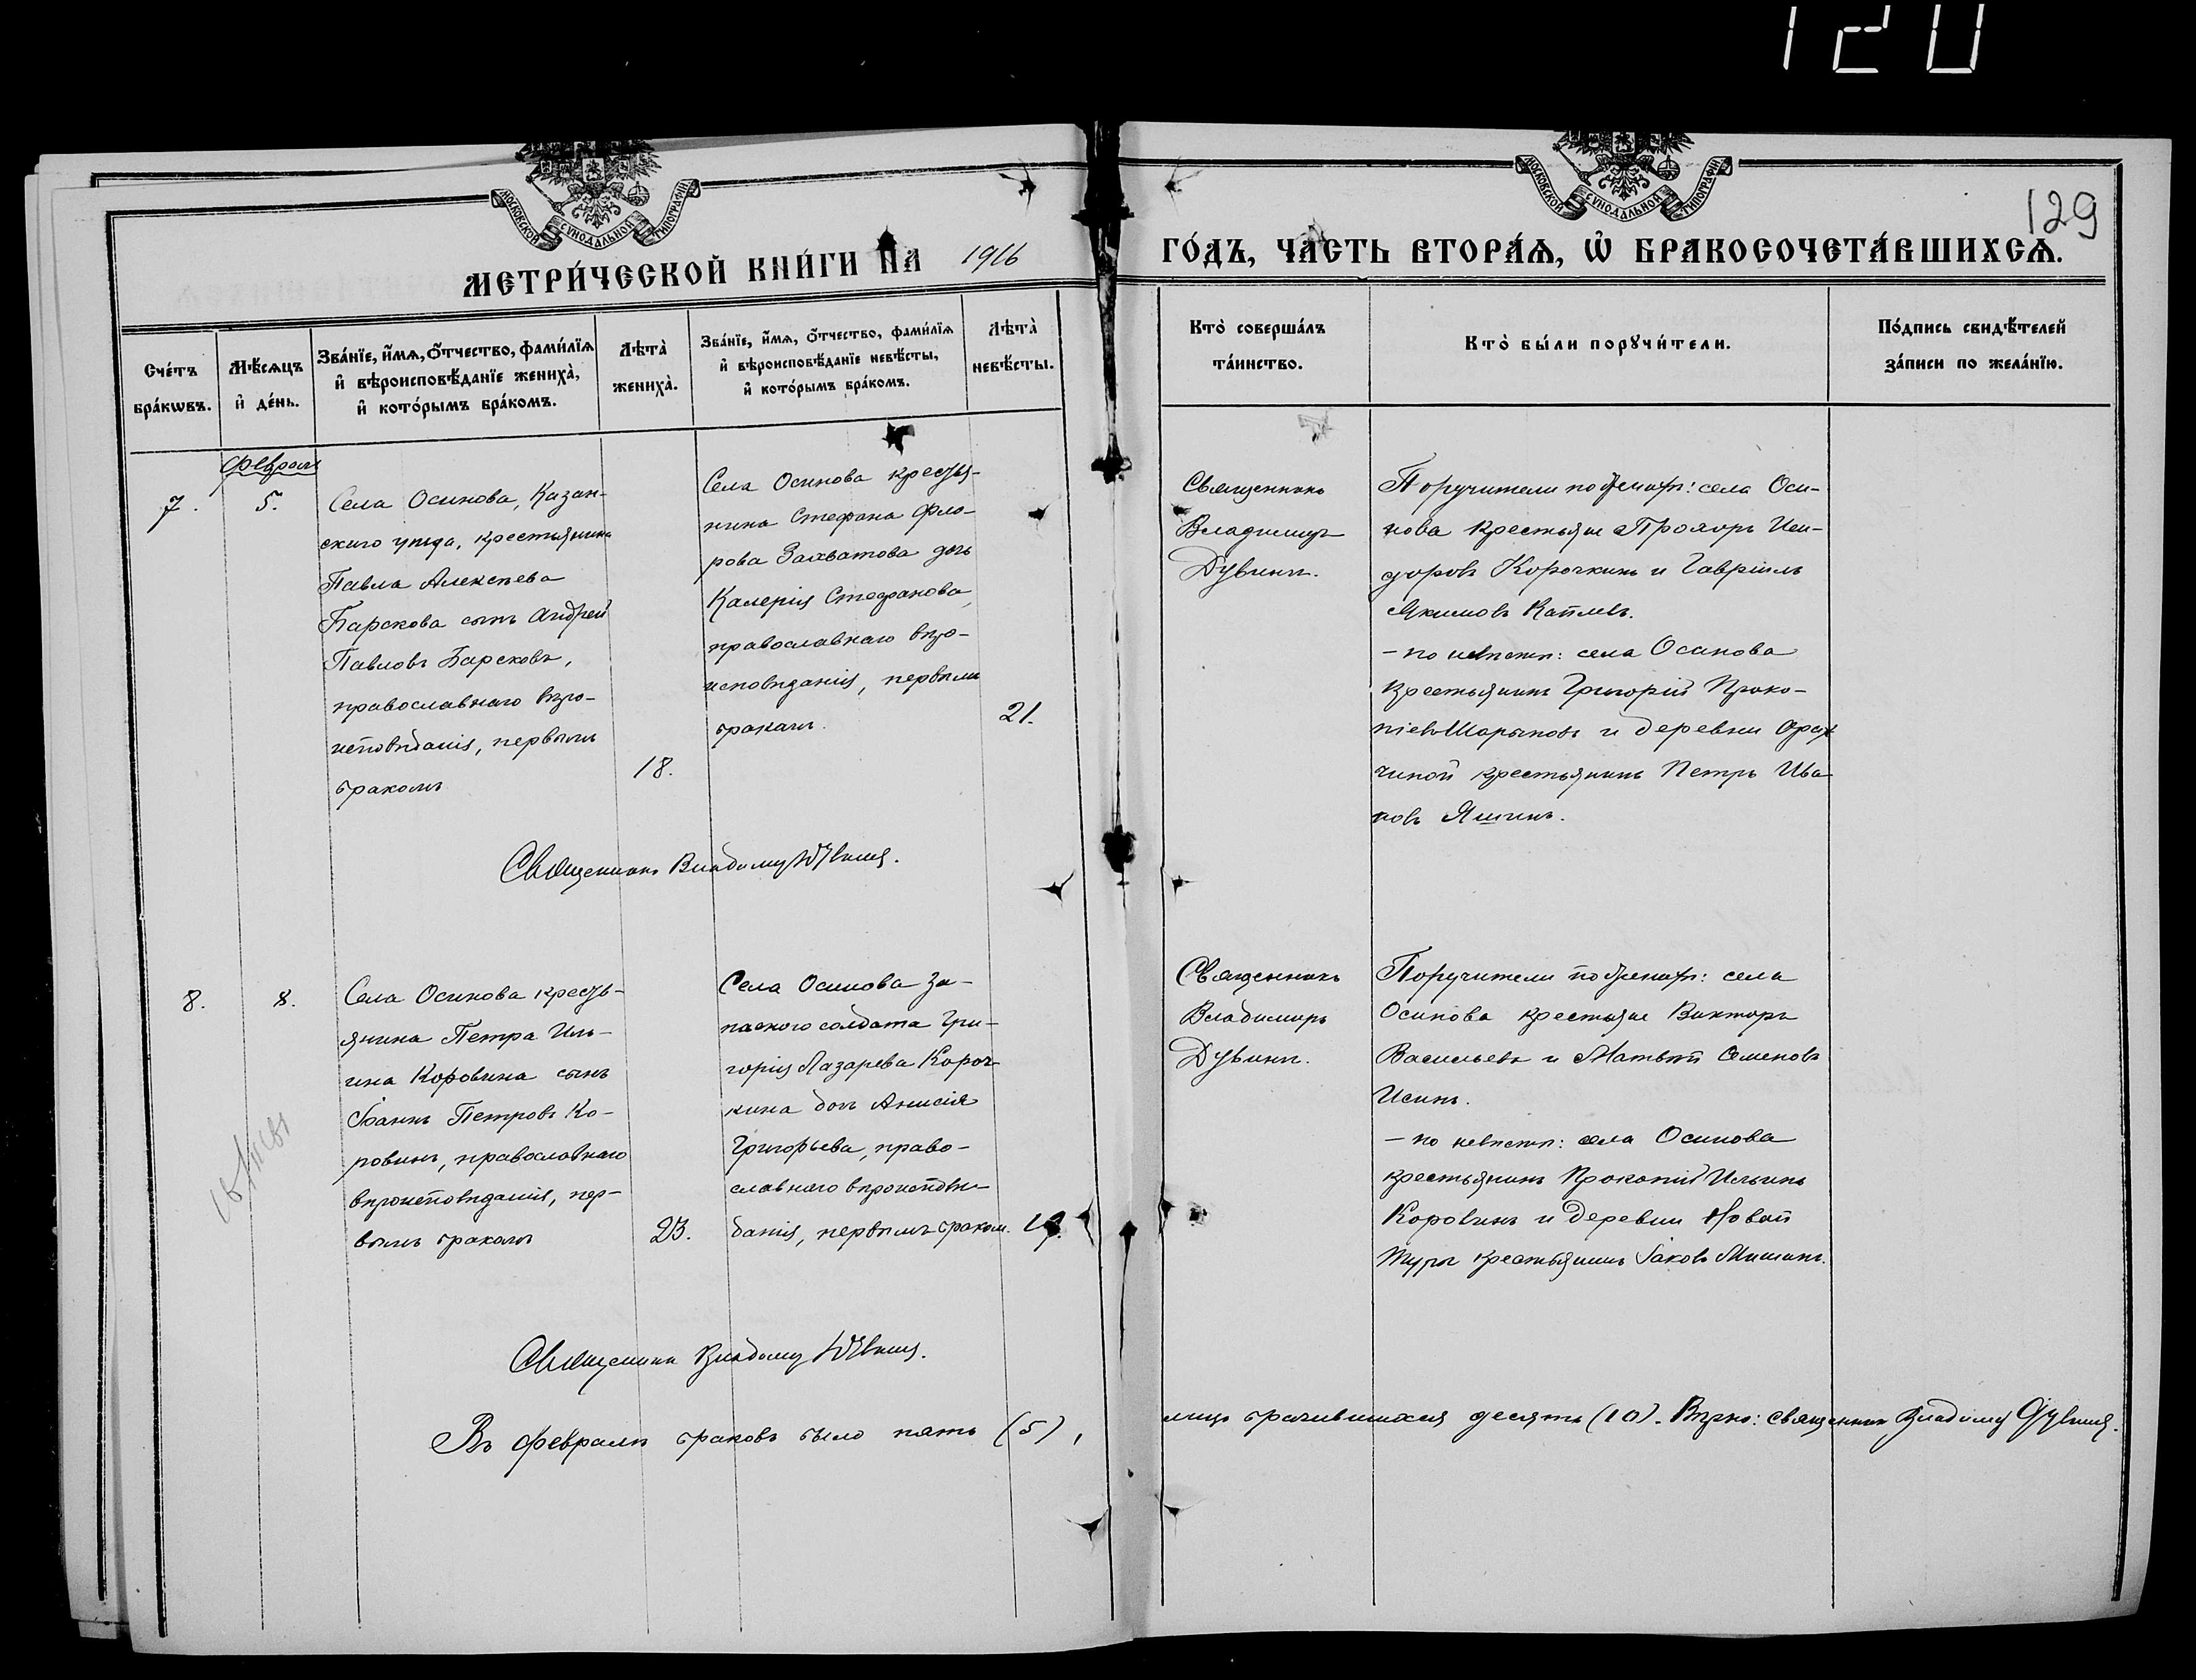 120
МОСКОВСКОЙ СѴНОДАЛЬНОЙ ТИПОГРАФІИ
МОСКОВСКОЙ СѴНОДАЛЬНОЙ ТИПОГРАФІИ
129
МЕТРИ́ЧЕСКОЙ КНИ́ГИ НА 1916
ГО́ДЪ, ЧА́СТЬ ВТОРА́Ѧ, Ѡ҆ БРАКОСОЧЕТА́ВШИХСѦ.
Сче́тъ
бра́кѡвъ.
Мѣ́сѧцъ
и҆ де́нь.
Зва́нїе, и҆́мѧ, ѻ҆́тчество, фами́лїѧ
и҆ вѣроисповѣ́данїе жениха̀,
и҆ кото́рымъ бра́комъ.
Лѣта̀
жениха̀.
Зва́нїе, и҆́мѧ, ѻ҆́тчество, фами́лїѧ
и҆ вѣроисповѣ́данїе невѣ́сты,
и҆ кото́рымъ бра́комъ.
Лѣта̀
невѣ́сты.
Кто̀ соверша́лъ
та́инство.
Кто̀ бы́ли порꙋчи́тели.
По́дпись свидѣ́телей
за́писи по жела́нїю.
Февраль
7.
5.
Села Осинова, Казан-
скаго уѣзда, крестьянина
Павла Алексѣева
Барскова сынъ Андрей
Павловъ Барсковъ,
православнаго вѣро-
исповѣданія, первымъ
бракомъ
18.
Села Осинова кресть-
нина Стефана Фло-
рова Захватова дочь
Калерія Стефанова,
православнаго вѣро-
исповѣданія, первымъ
бракомъ.
21.
Священникъ
Владимиръ
Дувинъ.
Поручители по женихѣ: села Оси-
нова крестьяне Прохоръ Иси-
доровъ Корочкинъ и Гавріилъ
Якимовъ
– по невѣстѣ: села Осинова
крестьянинъ Григорій Проко-
піевъ Шарыповъ и деревни
чиной крестьянинъ Петръ Ива
новъ Яшинъ.
Священникъ Владимир
8.
8.
Села Осинова кресть-
янина Петра Иль-
ина Коровина сынъ
Іоаннъ Петровъ Ко-
ровинъ, православнаго
вѣроисповѣданія, пер-
вымъ бракомъ
23.
Села Осинова за-
паснаго солдата Гри-
горія Лазарева Короч-
кина дочь Анисія
Григорьева, право-
славнаго вѣроисповѣ-
данія, первымъ браком. 19.
Священникъ
Владимиръ
Дувинъ.
Поручители по женихѣ: села
Осинова крестьяне Викторъ
Васильевъ и Матвѣй Семеновъ
Исинъ.
– по невѣстѣ: села Осинова
крестьянинъ Прокопій Ильинъ
Коровинъ и деревни Новой
Туры крестьянинъ Іаковъ Мишинъ.
Священникъ Владимир
Въ февралѣ браковъ было пять (5),
лицъ брачившихся десять (10). Вѣрно: священник Владимир